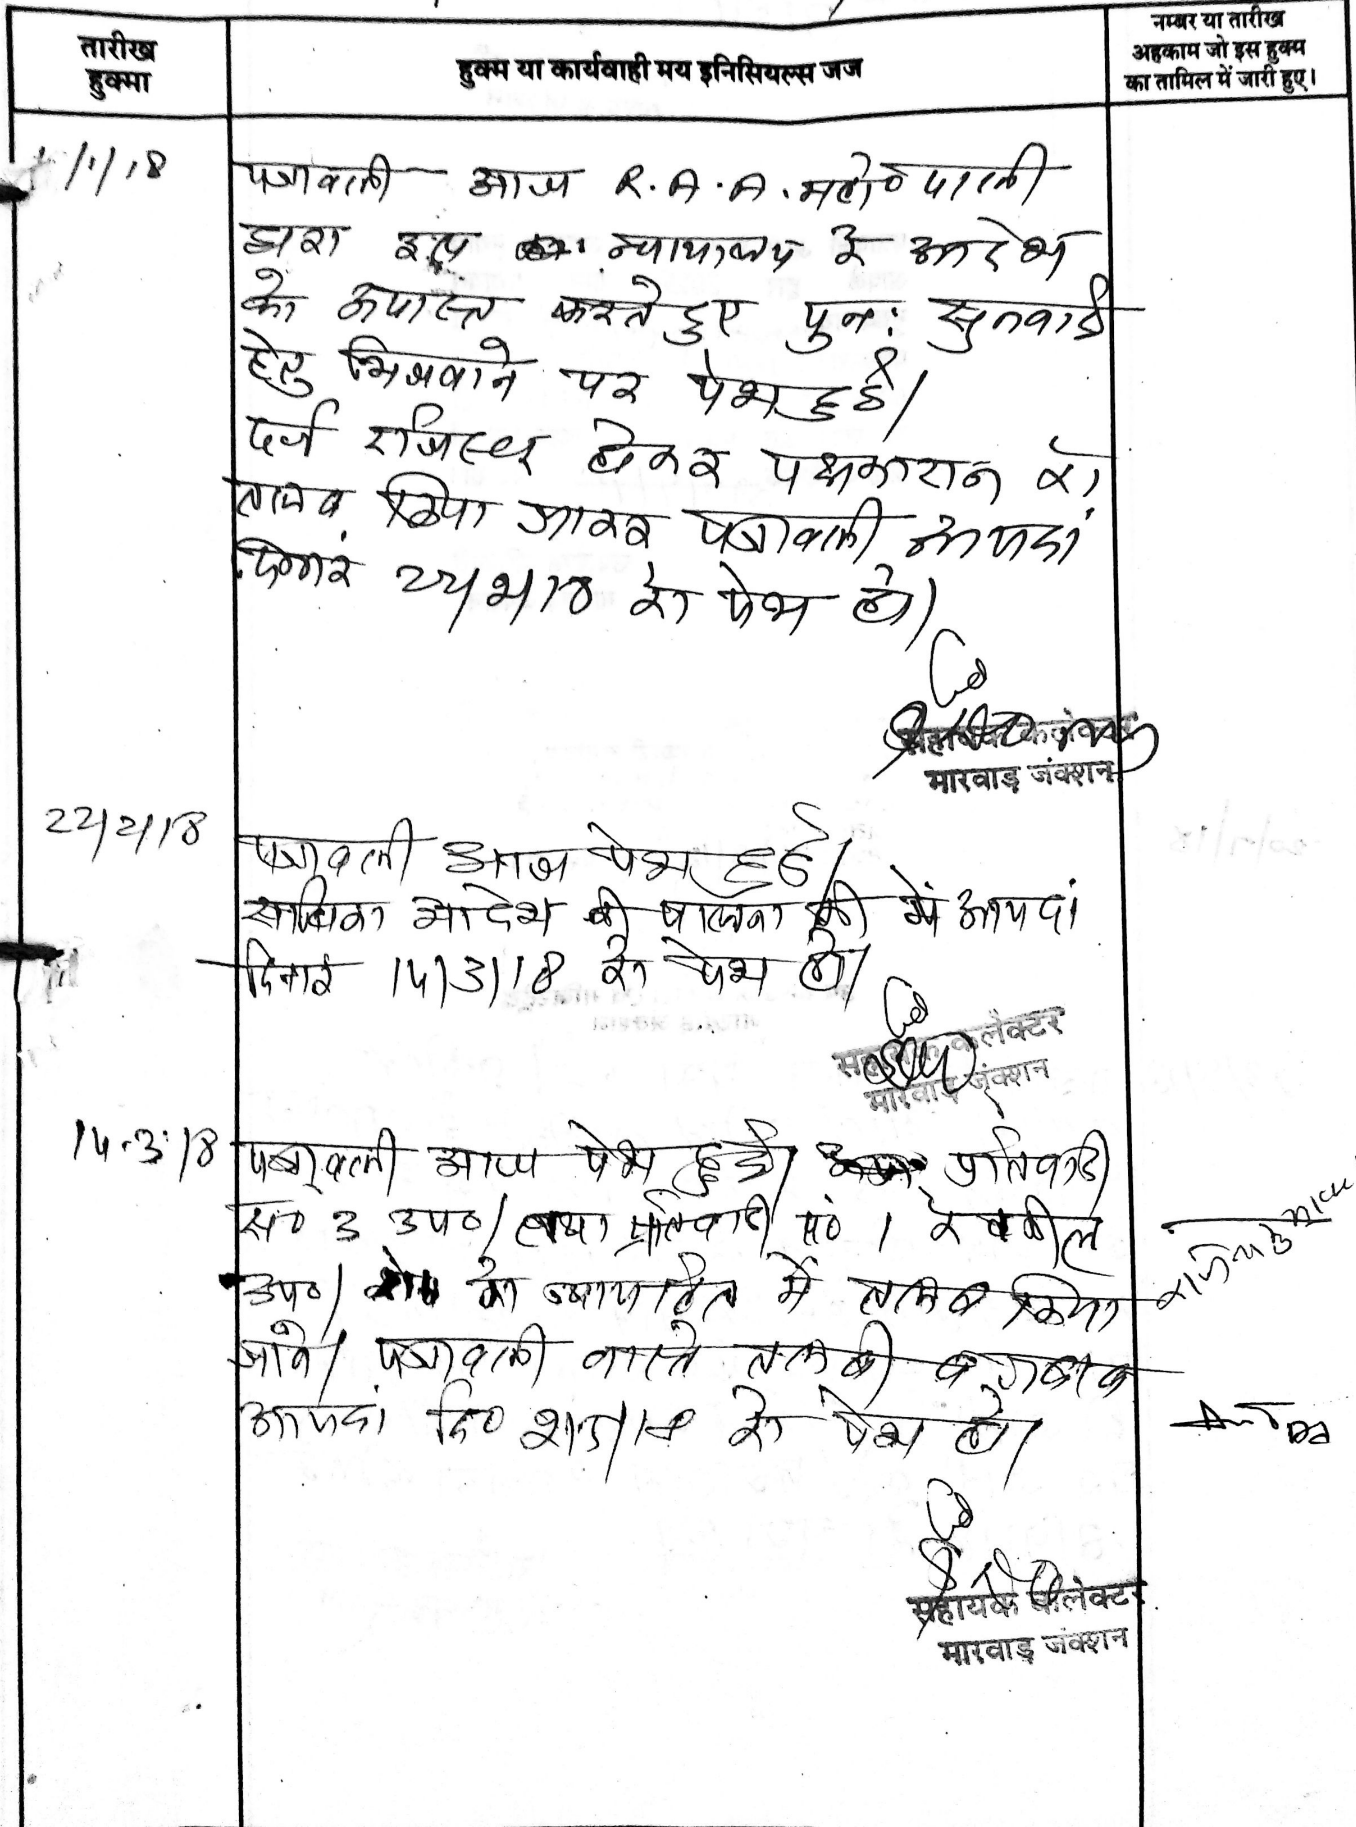 तारीख
हुक्मा
हुक्म या कार्यवाही मय इनिसियल्स जज
नम्बर या तारीख
अहकाम जो इस हुक्म
का तामिल में जारी हुए।
/1/18
पत्रावली आज R.A.A. महो० पाली
द्वारा इस न्यायालय के आदेश
को अपास्त करते हुए पुन: सुनवाई
हेतु भिजवाने पर पेश हुई।
दर्ज रजिस्टर होकर पक्षकारान को
तलब किया जाकर पत्रावली आयन्दा
दिनांक 22/2/18 को पेश हो।
सहायक कलेक्टर
मारवाड़ जंक्शन
22/2/18
पत्रावली आज पेश हुई।
साबिका आदेश की पालना में आयन्दा
दिनांक 14/3/18 को पेश हो।
सहायक कलेक्टर
मारवाड़ जंक्शन
14.3.18
पत्रावली आज पेश हुई। प्रतिवादी
सं० 3 उप०। तथा प्रतिवादी सं० 1 के वकील
उप०। शेष को न्यायहित में तलब किया
जावे। पत्रावली वास्ते तलबी व जबाब
आयन्दा दि० को पेश हो।
सहायक कलेक्टर
मारवाड़ जंक्शन